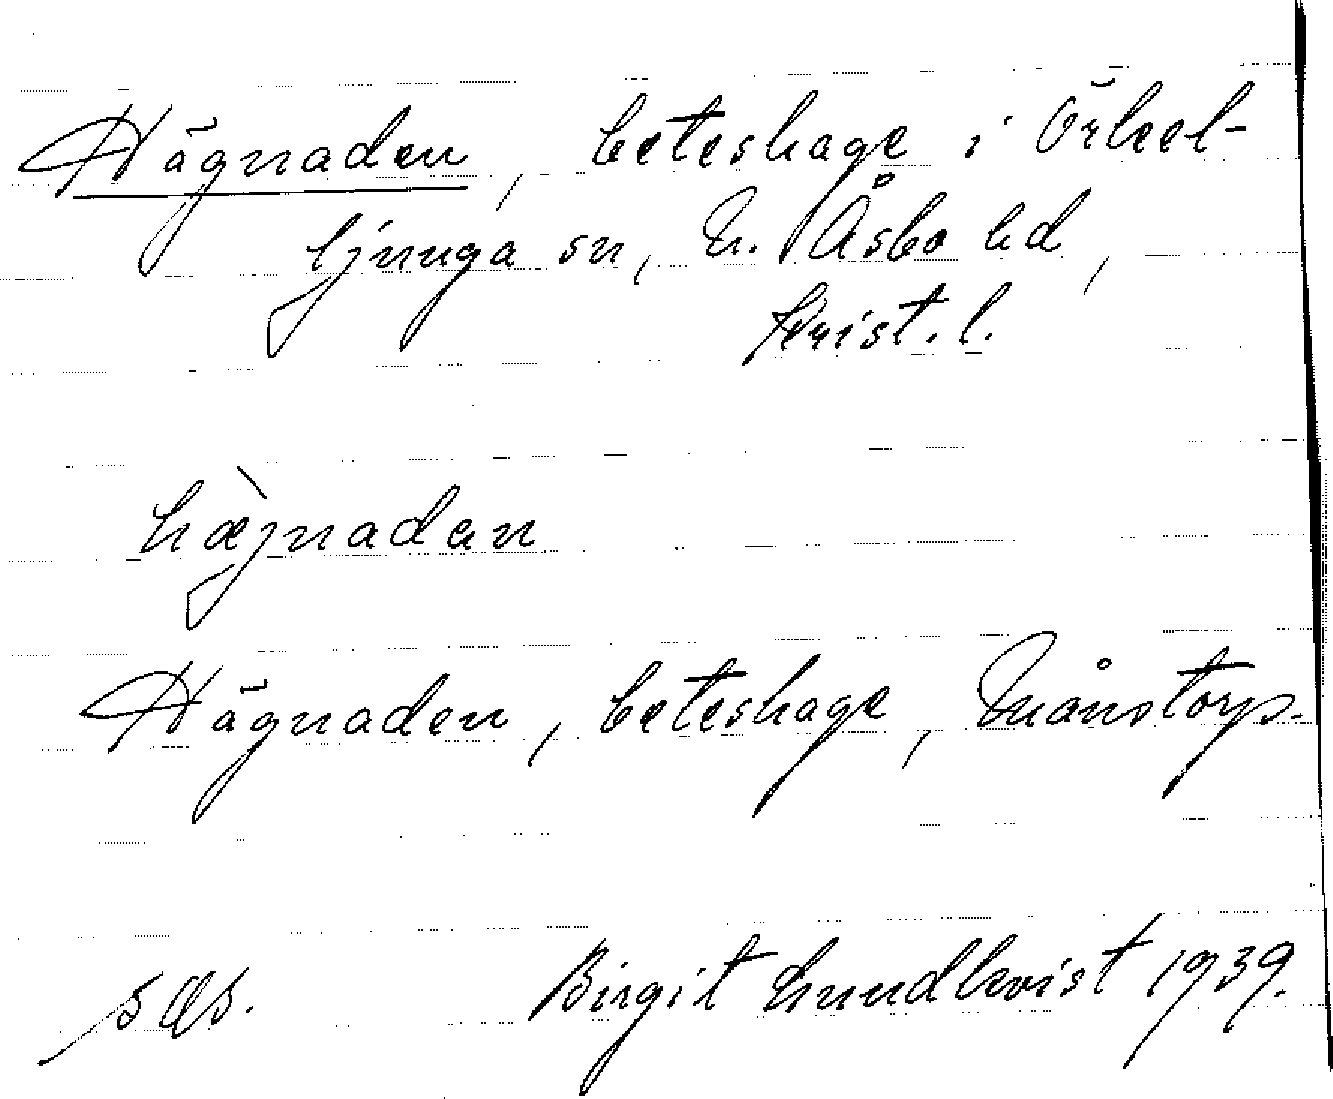 Hägnaden, beteshage i Örkel-
ljunga sn, N. Åsbo hd,
Krist. l.
hæ̀jnadan
Hägnaden, beteshage, Månstorp.
Birgit Lundkvist 1939.